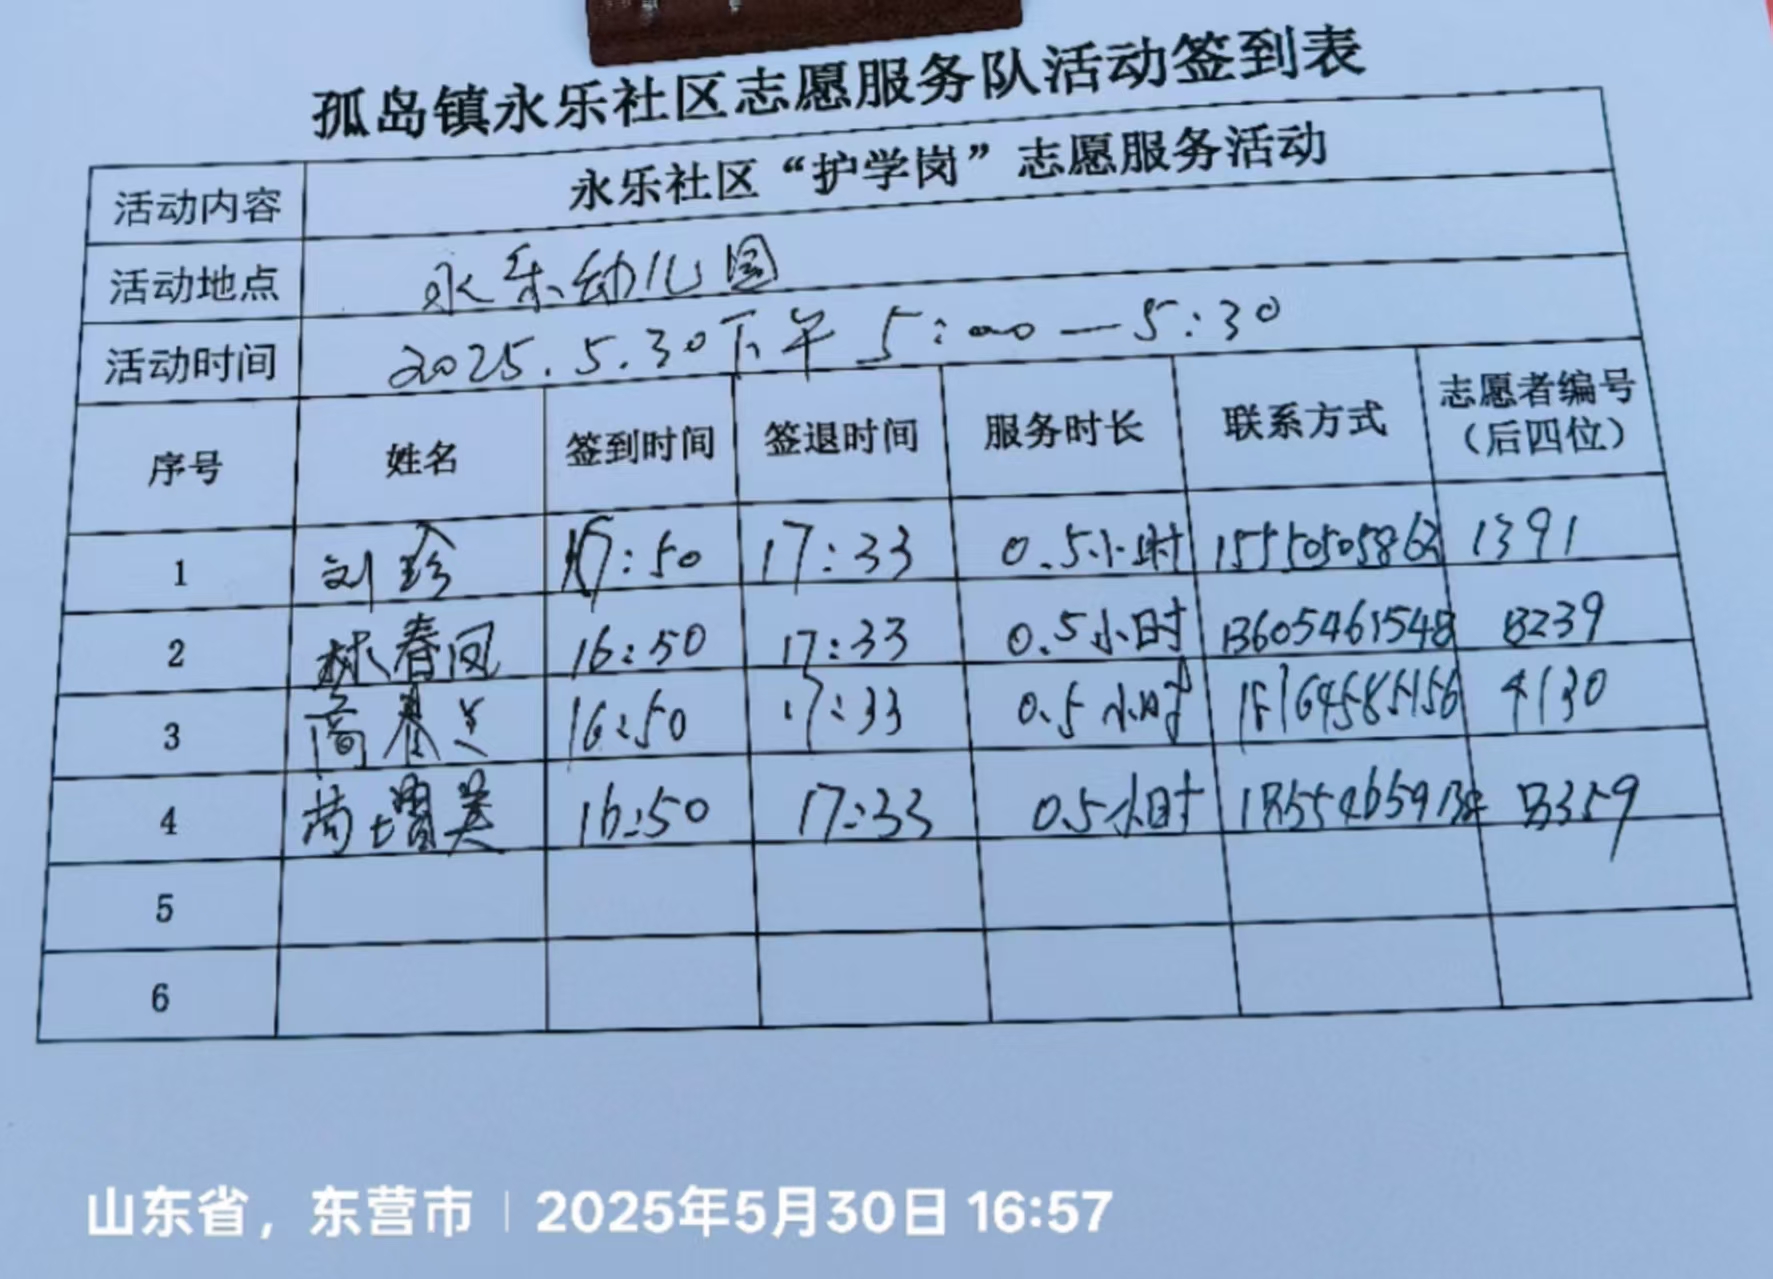 孤岛镇永乐社区志愿服务队活动签到表
活动内容 永乐社区“护学岗”志愿服务活动
活动地点 永乐幼儿园
活动时间 2025.5.30下午 5:00—5:30
序号 姓名 签到时间 签退时间 服务时长 联系方式 志愿者编号（后四位）
1 刘珍 :50 17:33 0.5小时 1391
2 林春凤 16:50 17:33 0.5小时 13605461548 8239
3 高春 16:50 17:33 0.5小时 4130
4 增英 16:50 17:33 0.5小时
5
6
山东省，东营市 | 2025年5月30日 16:57